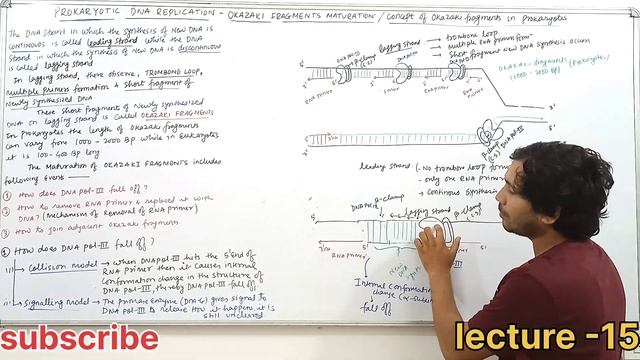 PROKARYOTIC DNA REPLICATION - OKAZAKI FRAGMENTS MATURATION / Concept of Okazaki fragments in prokaryotes
The DNA strand in which the synthesis of New DNA is
CONTINUOUS is called leading strand while the DNA
strand in which the synthesis of new DNA is discontinous
is called lagging strand
In lagging strand, there observe, TROMBONE LOOP,
Multiple primers formation & short fragment of
Newly synthesized DNA
These short fragment of Newly synthesized
DNA on lagging strand is called OKAZAKI FRAGMENTS
In Prokaryotes the length of Okazaki fragments
can vary from 1000 - 2000 BP while in eukaryotes
it is 100-400 BP long
The Maturation of OKAZAKI FRAGMENTS includes
following events
1 How does DNA Pol-III fall off?
2 How to remove RNA Primer & replaced it with
DNA? (Mechanism of Removal of RNA primer)
3 How to join adjacent Okazaki fragments
How does DNA pol-III fall off?
Collision model → when DNA pol-III hits the 5' end of
RNA primer then it causes internal
confirmation change in the structure of
DNA pol-III, thereby DNA pol-III fall off.
Signalling model → The primase enzyme (DnaG) gives signal to
DNA pol-III to release how it happens, it is
still uncleared
lagging strand → trombone loop
→ multiple RNA primer form
→ short fragment new DNA synthesis occurs
OKAZAKI fragments (Prokaryotes)
(1000-2000 BP)
RNA primer
RNA primer
3'
5'
DNA pol-III
leading strand (- No trombone loop
- only one RNA primer
→ Continous synthesis
β-clamp
DNA pol-III
lagging strand
β-clamp
3'
5'
RNA primer
5'
Internal confirmation
change
fall off
subscribe
lecture -15